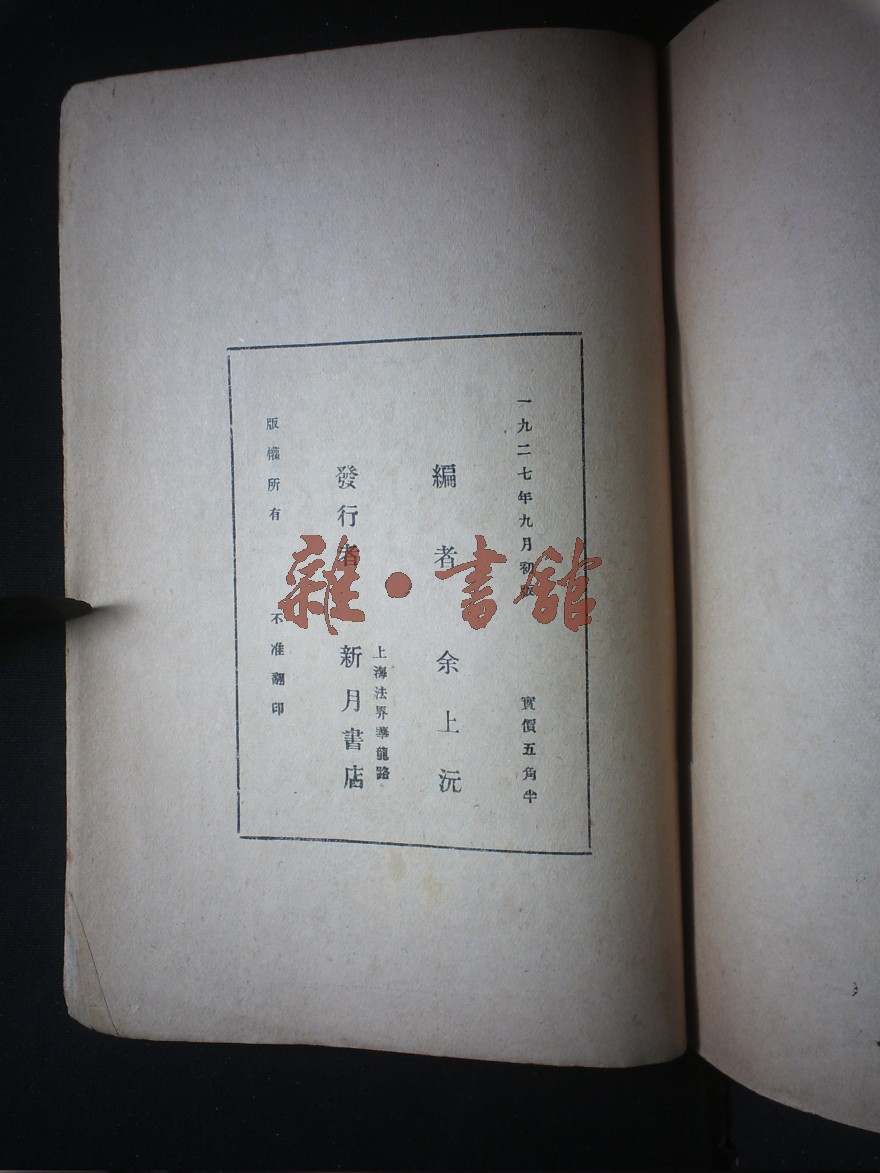 一九二七年九月初版 實價五角半
編者 余上沅
上海法界華龍路
發行者 新月書店
版權所有 不准翻印
雜·書館